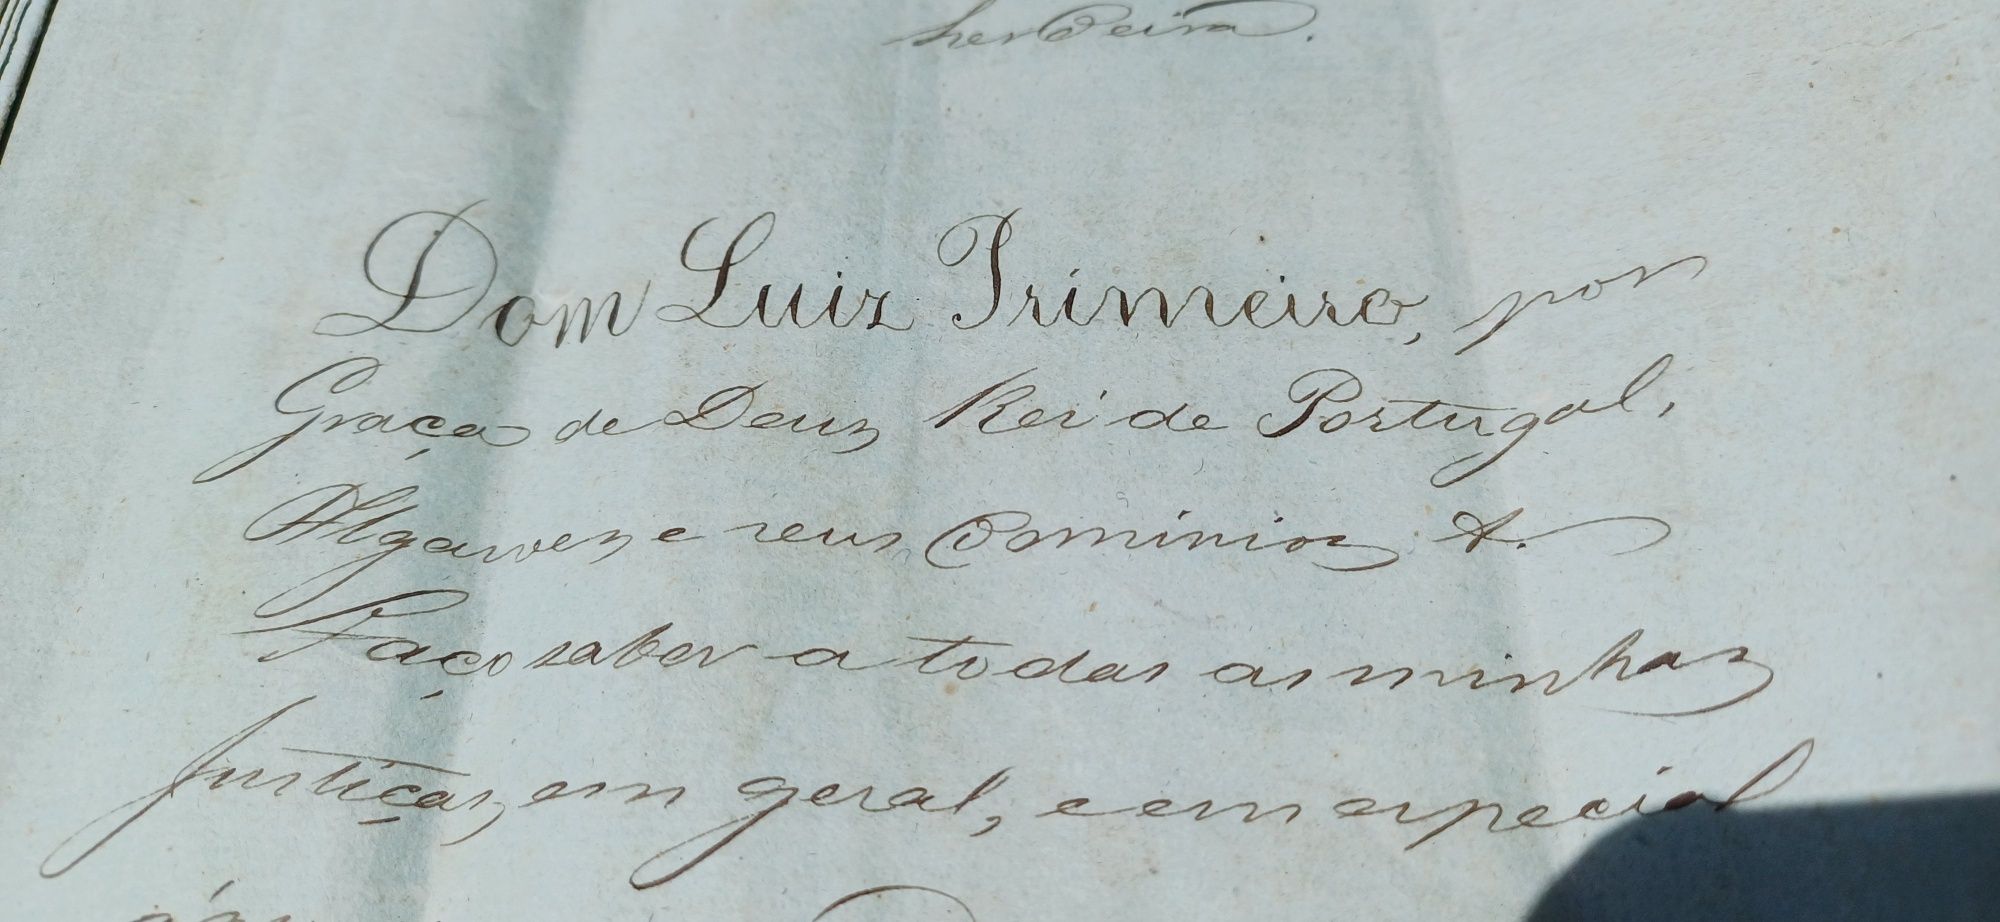 herdeira.
Dom Luiz Primeiro, por
Graça de Deus Rei de Portugal,
Algarves e seus Dominios &.
Faço saber a todas as minhas
Justiças, em geral, e em especial